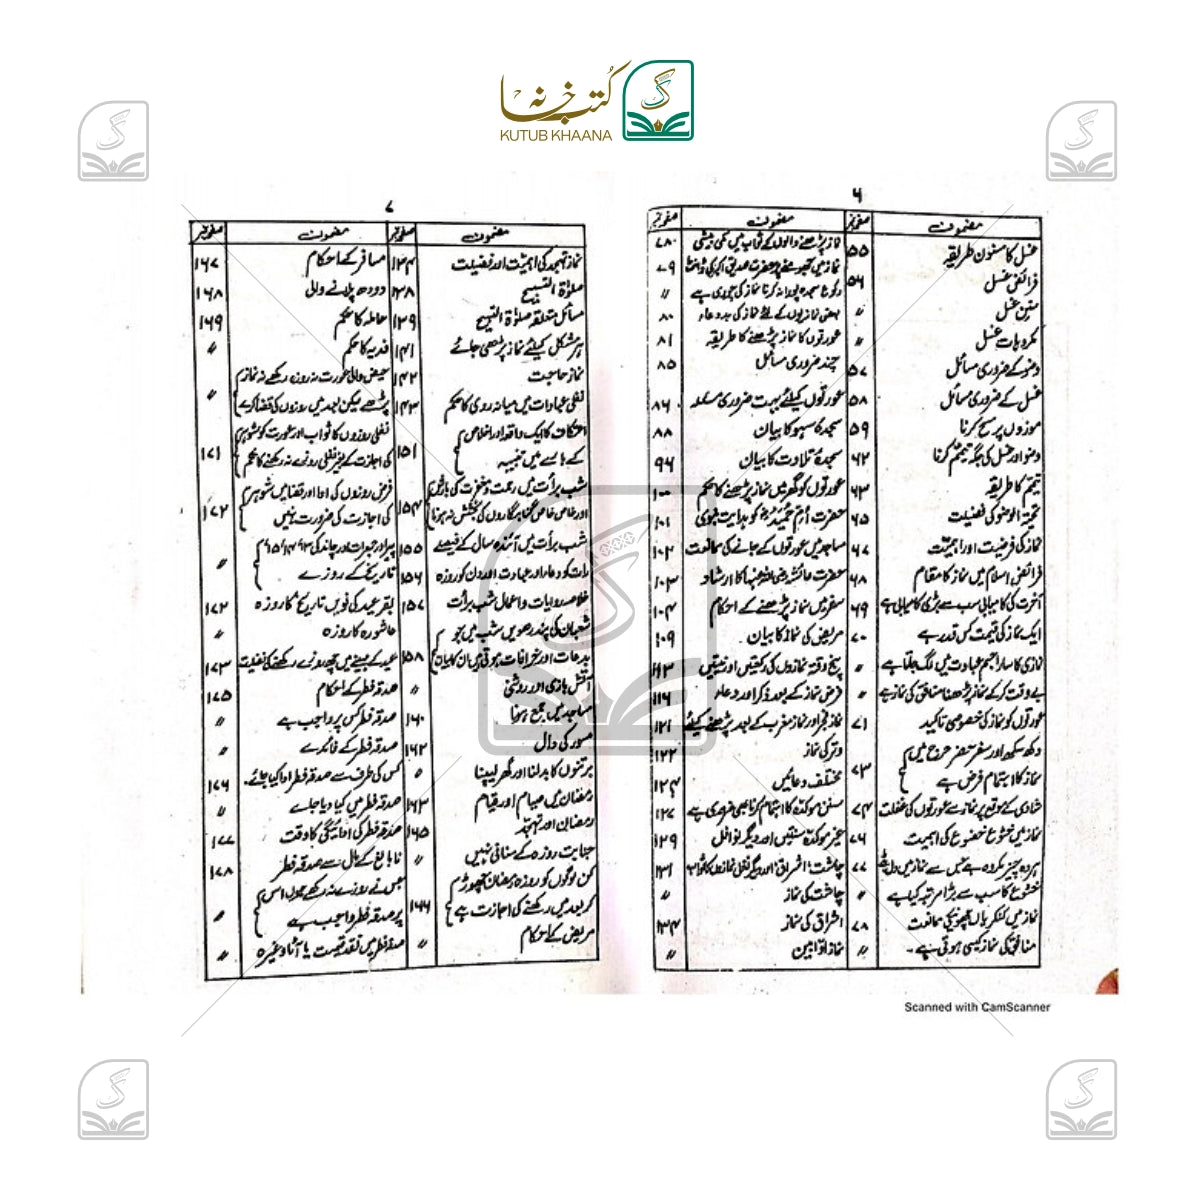 کتب خانہ
KUTUB KHAANA
۶
مضمون
صفحہ نمبر
مضمون
صفحہ نمبر
غسل کا مسنون طریقہ
۵۵
فرائض غسل
۵۶
سنن غسل
〃
مکروہات غسل
〃
وضو کے ضروری مسائل
۵۷
غسل کے ضروری مسائل
۵۸
موزوں پر مسح کرنا
۵۹
وضو اور غسل کی جگہ تیمم کرنا
۶۲
تیمم کا طریقہ
۶۳
تحیۃ الوضو کی فضیلت
۶۵
نماز کی فرضیت اور اہمیت
۶۷
فرائض اسلام میں نماز کا مقام
۶۸
آخرت کی کامیابی سب سے بڑی کامیابی ہے
۶۹
ایک نماز کی قیمت کس قدر ہے
۷۰
نمازی کا سارا جسم عبادت میں لگ جاتا ہے
〃
بے وقت کر کے نماز پڑھنا منافق کی نماز ہے
〃
عورتوں کو نماز کی خصوصی تاکید
۷۱
دکھ سکھ اور سفر حضر حرج میں
نماز کا اہتمام فرض ہے
۷۳
شادی کے موقع پر نماز سے عورتوں کی غفلت
۷۴
نماز میں خشوع خضوع کی اہمیت
۷۶
ہر وہ چیز مکروہ ہے جس سے نماز میں دل بٹے
۷۷
خشوع کا سب سے بڑا مرتبہ کیا ہے
〃
نماز میں کنکریاں چھونے کی ممانعت
۷۸
منافق کی نماز کیسی ہوتی ہے۔
〃
نماز پڑھنے والوں کے ثواب میں کمی بیشی
۷۸۰
نماز میں جھومنے پر حضرت صدیق اکبر کی ڈانٹ
۷۹
رکوع سجدہ پورا نہ کرنا نماز کی چوری ہے
〃
بعض نمازیوں کے لئے نماز کی بددعاء
۸۰
عورتوں کا نماز پڑھنے کا طریقہ
۸۱
چند ضروری مسائل
۸۵
عورتوں کیلئے بہت ضروری مسئلہ
۸۶
سجدۂ سہو کا بیان
۸۸
سجدۂ تلاوت کا بیان
۹۶
عورتوں کو گھر میں نماز پڑھنے کا حکم
۱۰۰
حضرت ام حمید کو ہدایت نبوی
۱۰۱
مساجد میں عورتوں کے جانے کی ممانعت
۱۰۲
حضرت عائشہ رضی اللہ عنہا کا ارشاد
۱۰۳
سفر میں نماز پڑھنے کے احکام
۱۰۴
مریض کی نماز کا بیان
۱۰۹
پنج وقتہ نمازوں کی رکعتیں اور نیتیں
۱۱۳
فرض نماز کے بعد ذکر اور دعاء
۱۱۶
نماز فجر اور نماز مغرب کے بعد پڑھنے کیلئے
۱۲۱
وتر کی نماز
۱۲۲
مختلف دعائیں
۱۲۴
سنن مؤکدہ کا اہتمام کرنا بھی ضروری ہے
۱۲۷
غیر مؤکدہ سنتیں اور دیگر نوافل
۱۲۹
چاشت، اشراق، اور دیگر نفل نمازوں کا ثواب
۱۳۱
چاشت کی نماز
〃
اشراق کی نماز
۱۳۴
نماز اوّابین
〃
۷
مضمون
صفحہ نمبر
مضمون
صفحہ نمبر
نماز تہجد کی اہمیت اور فضیلت
۱۳۴
صلوٰۃ التسبیح
۱۳۸
مسائل متعلقہ صلوٰۃ التسبیح
۱۳۹
ہر مشکل کیلئے نماز پڑھی جائے
۱۴۱
نماز حاجت
۱۴۲
نفلی عبادات میں میانہ روی کا حکم
۱۴۳
اعتکاف کا ایک واقعہ اور اخلاص
کے بارے میں تنبیہ
۱۵۱
شب برأت میں رحمت و مغفرت کی بارش
اور خاص خاص گناہ گاروں کی بخشش نہ ہونا
۱۵۴
شب برأت میں آئندہ سال کے فیصلے
۱۵۵
رات کو دعاء اور عبادت اور دن کو روزہ
۱۵۶
خلاصہ روایات و اعمال شب برأت
۱۵۷
شعبان کی پندرھویں شب میں جو
بدعات اور خرافات ہوتی ہیں ان کا بیان
۱۵۸
آتش بازی اور روشنی
〃
مساجد میں جمع ہونا
۱۶۰
مسور کی دال
۱۶۲
برتنوں کا بدلنا اور گھر لیپنا
〃
رمضان میں صیام اور قیام
۱۶۳
رمضان اور تہجد
۱۶۵
جنابت روزہ کے منافی نہیں
〃
کن لوگوں کو روزہ رمضان چھوڑ کر
بعد میں رکھنے کی اجازت ہے
۱۶۶
مریض کے احکام
〃
مسافر کے احکام
۱۶۷
دودھ پلانے والی
۱۶۸
حاملہ کا حکم
۱۶۹
فدیہ کا حکم
〃
حیض والی عورت نہ روزہ رکھے نہ نماز
پڑھے لیکن بعد میں روزوں کی قضا کرے
〃
نفلی روزوں کا ثواب اور عورت کو شوہر
کی اجازت کے بغیر نفلی روزے نہ رکھنے کا حکم
۱۷۱
فرض روزوں کی ادا اور قضا میں شوہر
کی اجازت کی ضرورت نہیں
۱۷۲
پیر اور جمعرات اور چاند کی ۱۳، ۱۴، ۱۵
تاریخ کے روزے
〃
بقر عید کی نویں تاریخ کا روزہ
۱۷۲
عاشورہ کا روزہ
〃
عید کے مہینے میں چھ روزے رکھنے کی فضیلت
۱۷۳
صدقہ فطر کے احکام
۱۷۵
صدقہ فطر کس پر واجب ہے
〃
صدقہ فطر کے فائدے
〃
کس کی طرف سے صدقہ فطر ادا کیا جائے۔
۱۷۶
صدقہ فطر میں کیا دیا جاے
〃
صدقہ فطر کی ادائیگی کا وقت
۱۷۷
نابالغ کے مال سے صدقہ فطر
۱۷۸
جس نے روزے نہ رکھے ہوں اس
پر صدقہ فطر واجب ہے
〃
صدقہ فطر میں نقد قیمت یا آٹا وغیرہ
〃
Scanned with CamScanner